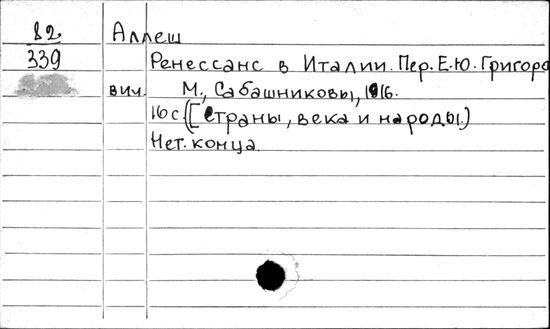 82 Аллеш
339 Ренессанс в Италии. Пер. Е.Ю. Григоро
вич. М., Сабашниковы, 1916.
16 с. ([Страны, века и народы.)
Нет. конца.